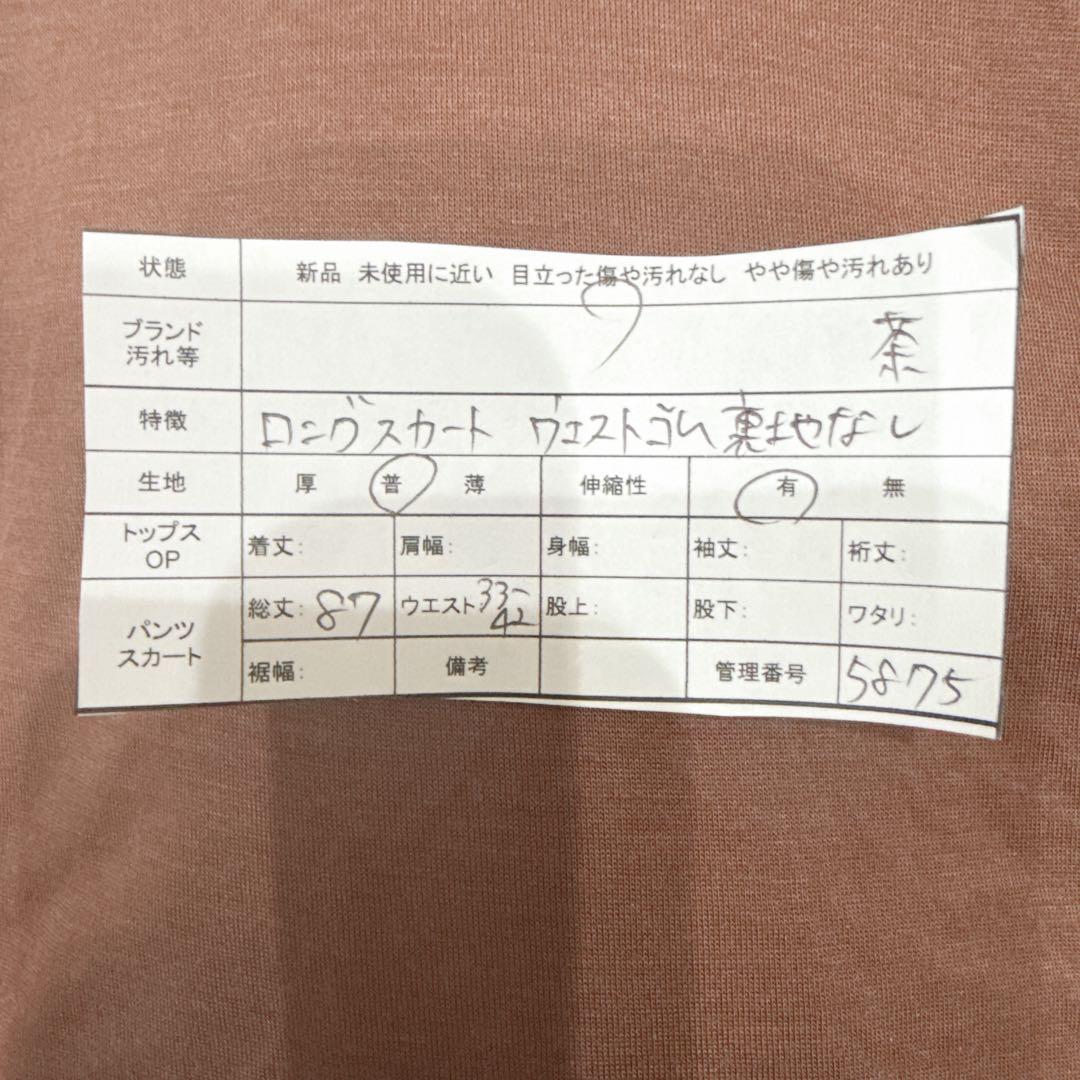 状態 新品 未使用に近い 目立った傷や汚れなし やや傷や汚れあり
ブランド
汚れ等 茶
特徴 ロングスカート ウエストゴム 裏地なし
生地 厚 普 薄 伸縮性 有 無
トップス
OP 着丈: 肩幅: 身幅: 袖丈: 裄丈:
パンツ
スカート
総丈: 87 ウエスト 33-42 股上: 股下: ワタリ:
裾幅: 備考 管理番号 5875